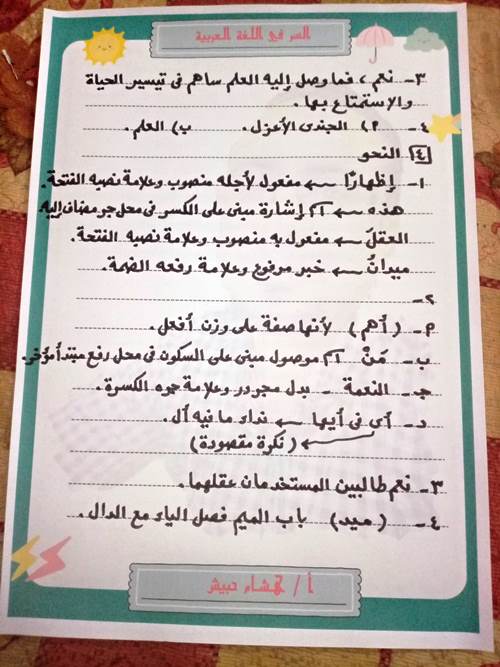 السر في اللغة العربية
٣- نعم، فما وصل إليه العلم ساهم في تيسير الحياة
والاستمتاع بها.
٤- أ) الجندي الأعزل. ب) العلم.
٤ النحو
١- إظهارًا ← مفعول لأجله منصوب وعلامة نصبه الفتحة.
هذه ← اسم إشارة مبني على الكسر في محل جر مضاف إليه
العقلَ ← مفعول به منصوب وعلامة نصبه الفتحة.
ميدانٌ ← خبر مرفوع وعلامة رفعه الضمة.
٢-
أ- (أهم) لأنها صفة على وزن أفعل.
ب- مَنْ اسم موصول مبني على السكون في محل رفع مبتدأ مؤخر.
جـ- النعمة - بدل مجرور وعلامة جره الكسرة.
د- أي في أيها ← نداء ما فيه أل.
(نكرة مقصودة)
٣- نعم طالبين المستخدمان عقلهما.
٤- (ميد) باب الميم فصل الياء مع الدال.
أ / هشام حبيش